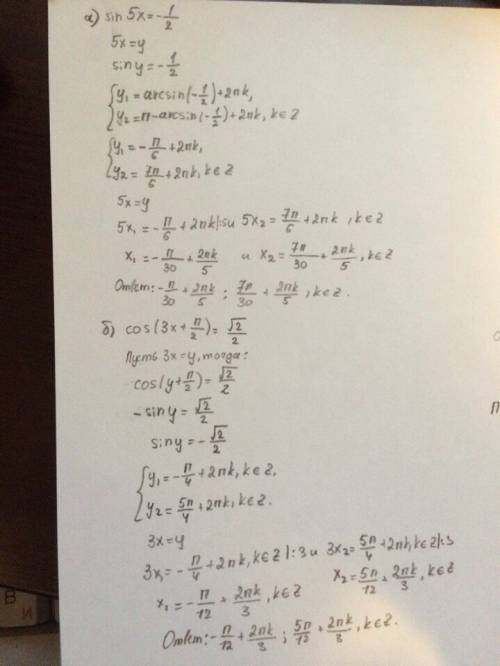 а) sin 5x = -1/2
5x = y
sin y = -1/2
{ y₁ = arcsin(-1/2) + 2πk,
{ y₂ = π - arcsin(-1/2) + 2πk, k∈Z
{ y₁ = -π/6 + 2πk,
{ y₂ = 7π/6 + 2πk, k∈Z
5x = y
5x₁ = -π/6 + 2πk |:5 и 5x₂ = 7π/6 + 2πk, k∈Z
x₁ = -π/30 + 2πk/5 и x₂ = 7π/30 + 2πk/5, k∈Z
Ответ: -π/30 + 2πk/5 ; 7π/30 + 2πk/5, k∈Z.
б) cos(3x + π/2) = √2/2
Пусть 3x = y, тогда:
cos(y + π/2) = √2/2
-sin y = √2/2
sin y = -√2/2
{ y₁ = -π/4 + 2πk, k∈Z,
{ y₂ = 5π/4 + 2πk, k∈Z.
3x = y
3x₁ = -π/4 + 2πk, k∈Z |:3 и 3x₂ = 5π/4 + 2πk, k∈Z |:3
x₁ = -π/12 + 2πk/3, k∈Z x₂ = 5π/12 + 2πk/3, k∈Z
Ответ: -π/12 + 2πk/3 ; 5π/12 + 2πk/3, k∈Z.
В
И